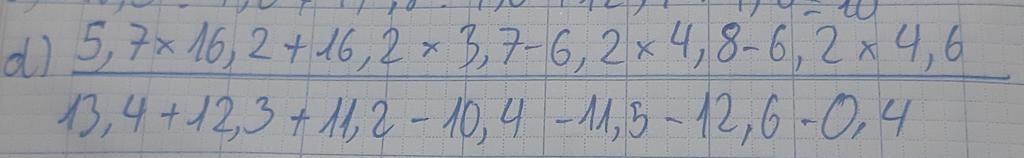 d) 5,7×16,2+16,2×3,7-6,2×4,8-6,2×4,6
13,4+12,3+11,2-10,4-11,5-12,6-0,4